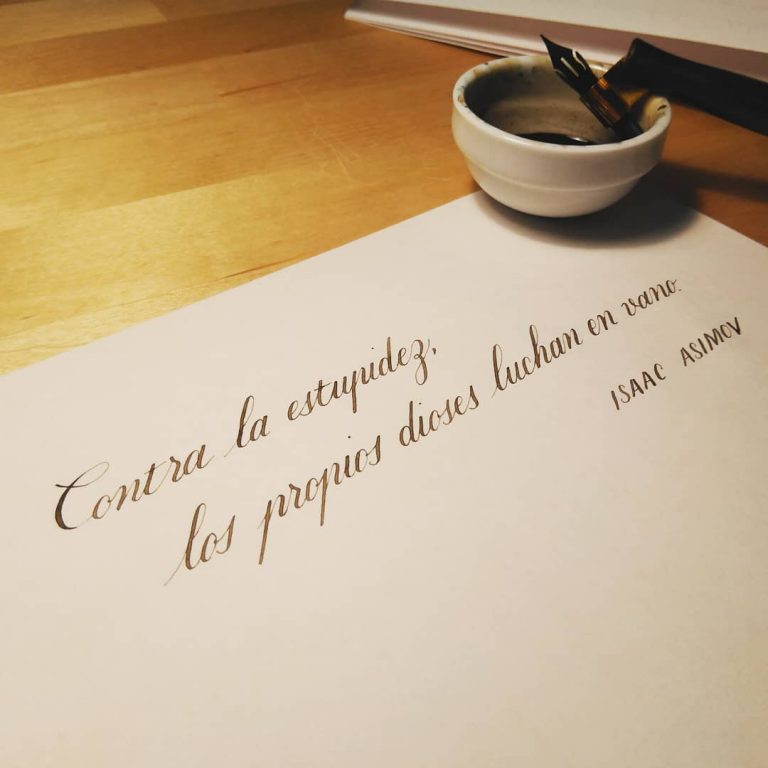 Contra la estupidez,
los propios dioses luchan en vano.
ISAAC ASIMOV